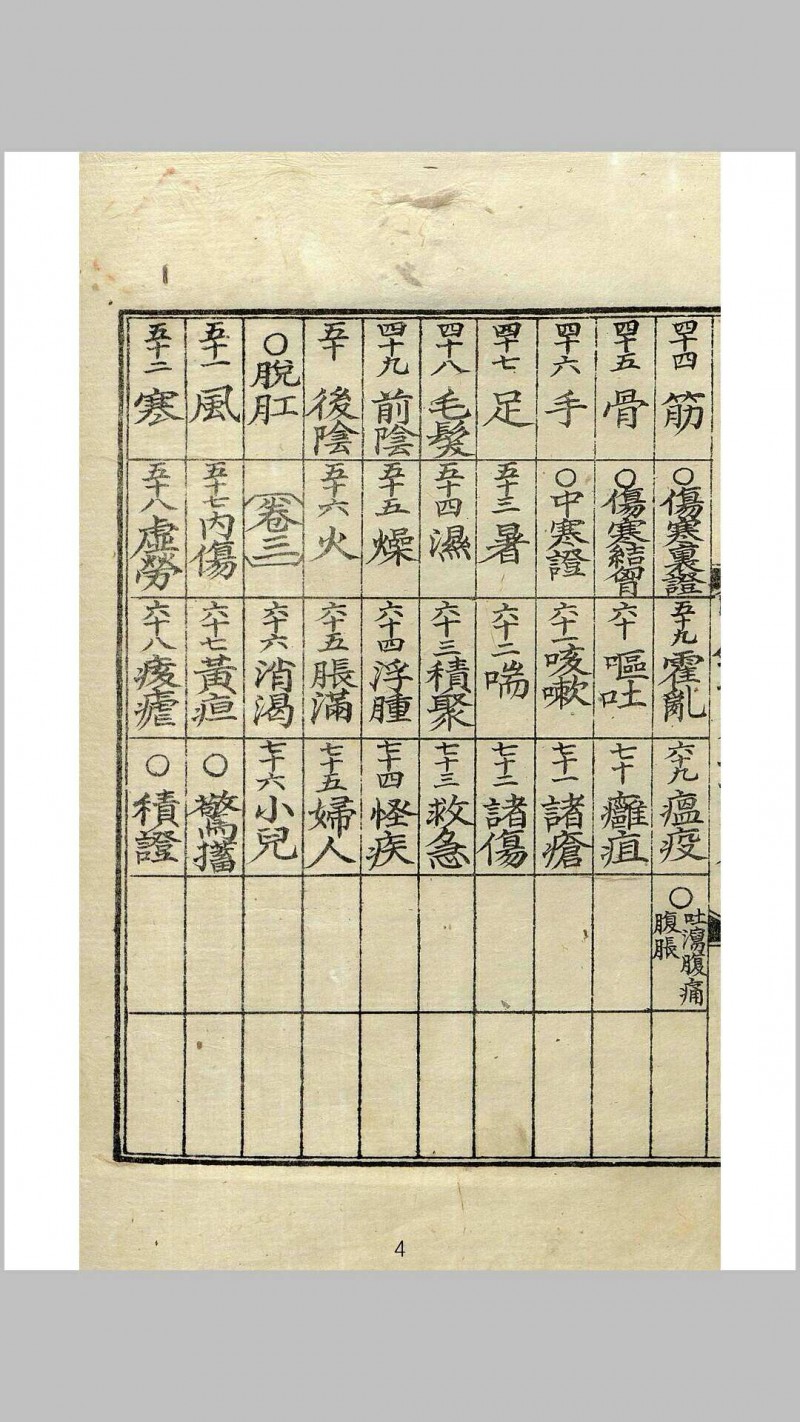 四十四 筋
四十五 骨
四十六 手
四十七 足
四十八 毛髮
四十九 前陰
五十 後陰
○脫肛
五十一 風
五十二 寒
○傷寒裏證
○傷寒結胷
○中寒證
五十三 暑
五十四 濕
五十五 燥
五十六 火
卷三
五十七 內傷
五十八 虛勞
五十九 霍亂
六十 嘔吐
六十一 咳嗽
六十二 喘
六十三 積聚
六十四 浮腫
六十五 脹滿
六十六 消渴
六十七 黃疸
六十八 痎瘧
六十九 瘟疫
七十 癰疽
七十一 諸瘡
七十二 諸傷
七十三 救急
七十四 怪疾
七十五 婦人
七十六 小兒
○ 驚搐
○ 積證
○吐瀉腹痛
腹脹
4